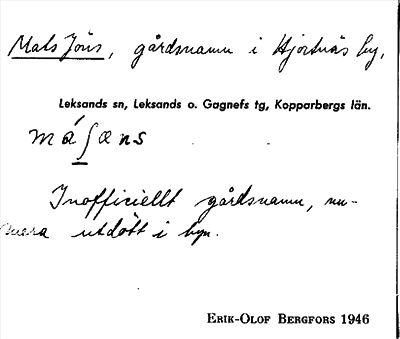 Mats Jöns, gårdsnamn i Hjortnäs by,
Leksands sn, Leksands o. Gagnefs tg, Kopparbergs län.
má̱ʃæns
Inofficiellt gårdsnamn, nu-
mera utdött i byn.
ERIK-OLOF BERGFORS 1946